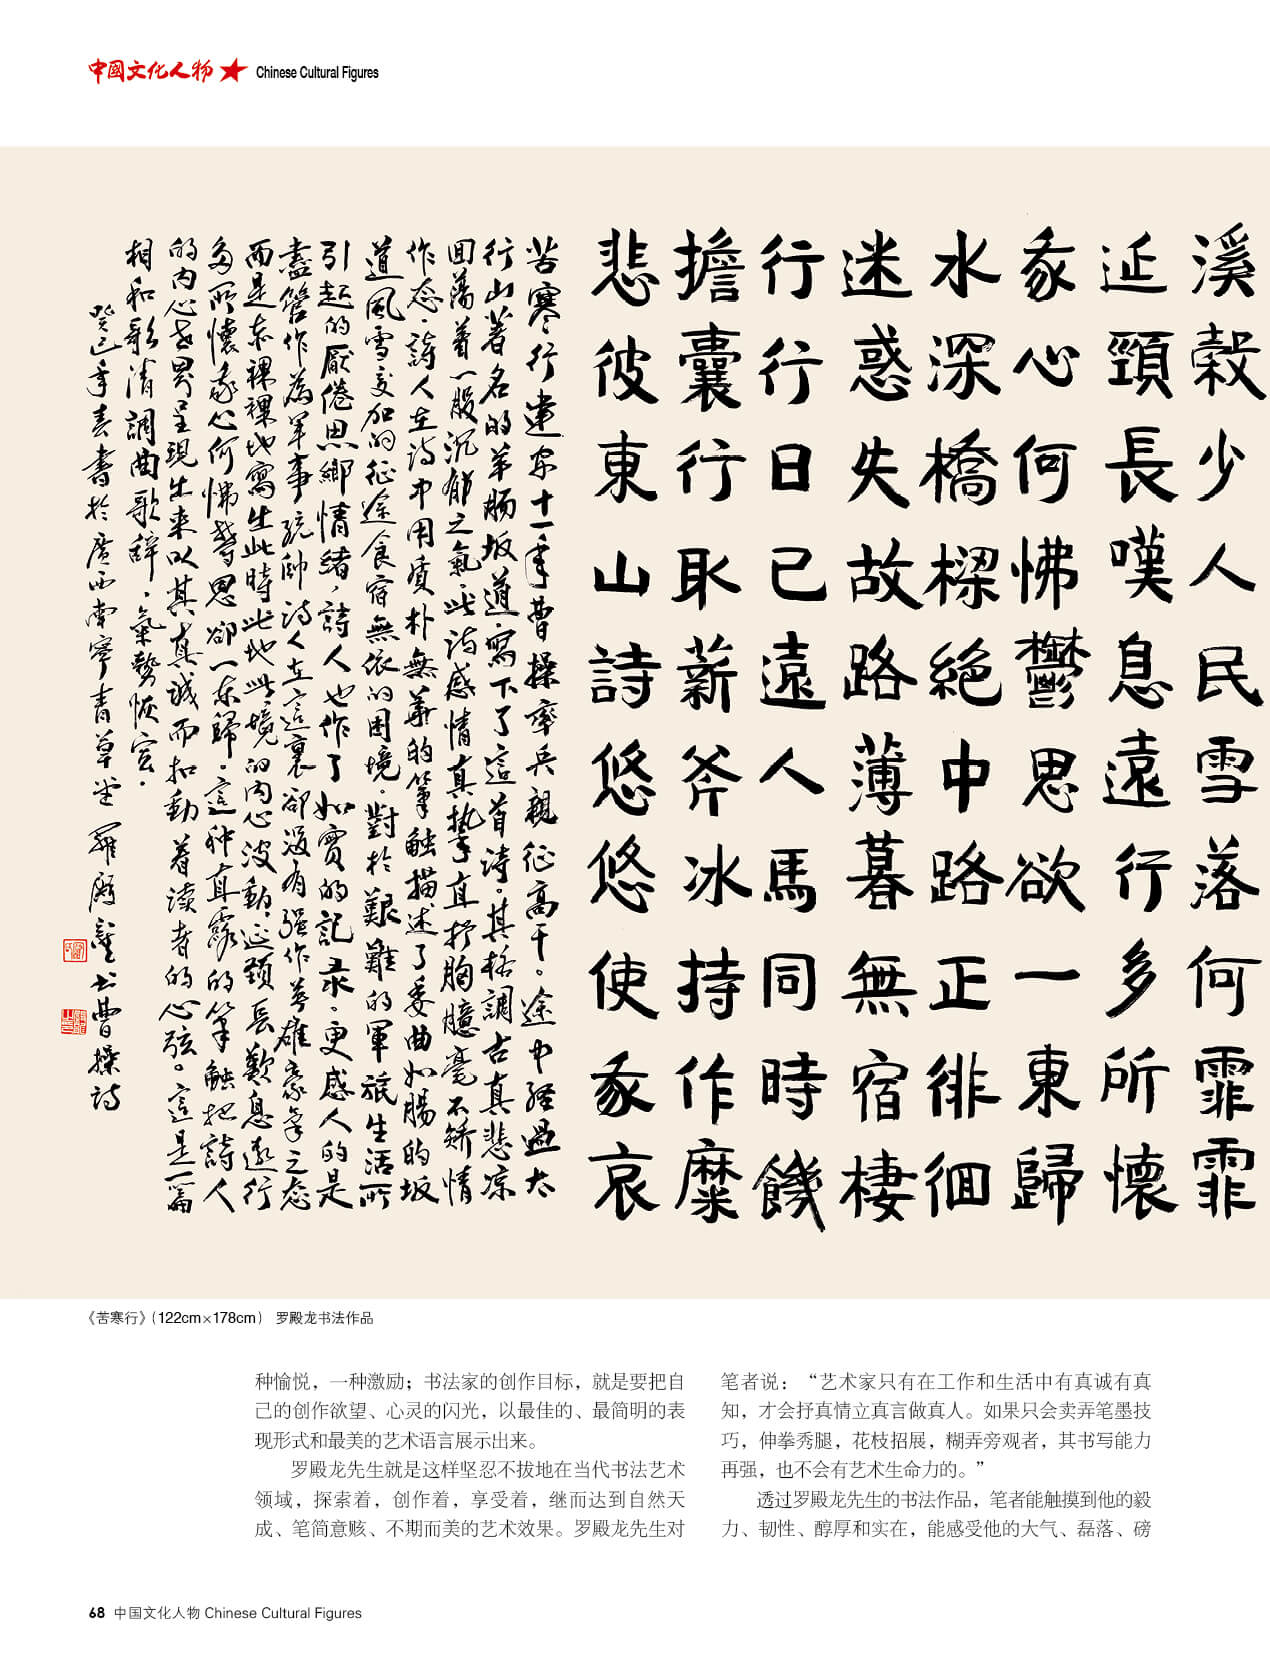 中國文化人物 Chinese Cultural Figures
溪穀少人民雪落何霏霏
延頸長嘆息遠行多所懷
我心何怫鬱思欲一東歸
水深橋樑絕中路正徘徊
迷惑失故路薄暮無宿棲
行行日已遠人馬同時饑
擔囊行取薪斧冰持作糜
悲彼東山詩悠悠使我哀
苦寒行建安十一年曹操率兵親征高干。途中經過太
行山著名的羊腸坂道，寫下了這首詩。其格調古真悲凉
回蕩着一股沉郁之氣。此詩感情真摯直抒胸臆毫不矯情
作态。詩人在诗中用質朴無華的筆触描述了委曲如腸的坂
道風雪交加的征途食宿無依的困境。對於艱難的軍旅生活所
引起的厭倦思鄉情緒，詩人也作了如實的記录。更感人的是
盡管作為軍事统帥诗人在這裏卻沒有强作英雄豪气之态
而是赤裸裸地寫出此時此地此境的内心波動，延頸長歎息遠行
多所懷我心何怫鬱思卻一东歸。這种直露的筆触把詩人
的内心世界呈現出來以其真誠而扣動着读者的心弦。這是一篇
相和歌清調曲歌辭，氣勢恢宏。
癸巳年春書於廣西南寧青草堂 羅殿龍书曹操詩
《苦寒行》（122cm×178cm） 罗殿龙书法作品
种愉悦，一种激励；书法家的创作目标，就是要把自
己的创作欲望、心灵的闪光，以最佳的、最简明的表
现形式和最美的艺术语言展示出来。
罗殿龙先生就是这样坚忍不拔地在当代书法艺术
领域，探索着，创作着，享受着，继而达到自然天
成、笔简意赅、不期而美的艺术效果。罗殿龙先生对
笔者说：“艺术家只有在工作和生活中有真诚有真
知，才会抒真情立真言做真人。如果只会卖弄笔墨技
巧，伸拳秀腿，花枝招展，糊弄旁观者，其书写能力
再强，也不会有艺术生命力的。”
透过罗殿龙先生的书法作品，笔者能触摸到他的毅
力、韧性、醇厚和实在，能感受他的大气、磊落、磅
68 中国文化人物 Chinese Cultural Figures